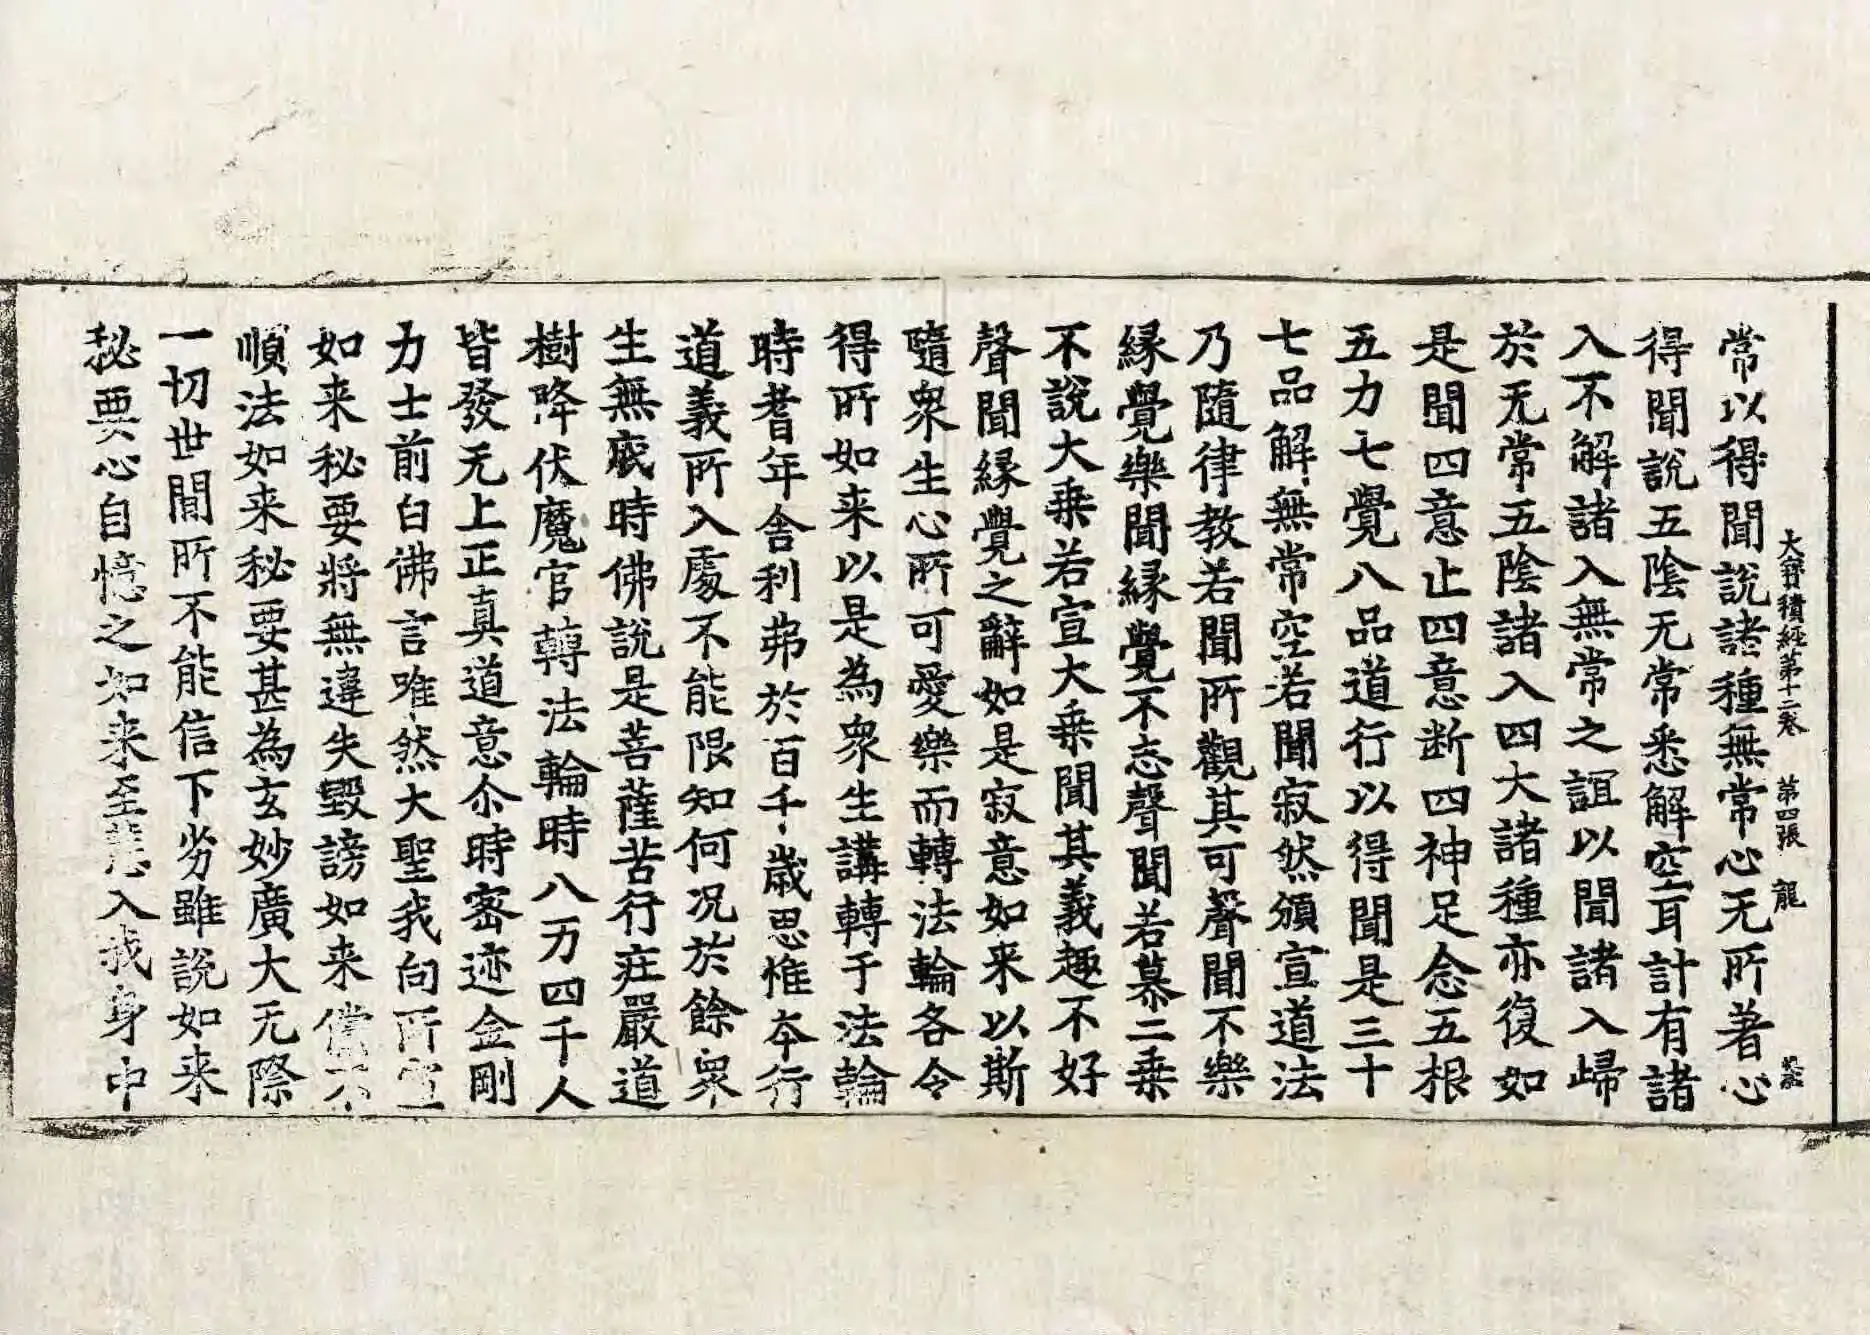 大寶積經第十二卷　第四張　龍
常以得聞說諸種無常心无所著心
得聞說五陰无常悉解空耳計有諸
入不解諸入無常之誼以聞諸入歸
於无常五陰諸入四大諸種亦復如
是聞四意止四意断四神足念五根
五力七覺八品道行以得聞是三十
七品解無常空若聞寂然頒宣道法
乃隨律教若聞所觀其可聲聞不樂
縁覺樂聞縁覺不忘聲聞若慕二乗
不說大乗若宣大乗聞其義趣不好
聲聞縁覺之辭如是寂意如来以斯
隨衆生心所可愛樂而轉法輪各令
得所如来以是為衆生講轉于法輪
時耆年舍利弗於百千歲思惟夲行
道義所入處不能限知何况於餘衆
生無央時佛說是菩薩苦行疘嚴道
樹降伏魔官轉法輪時八万四千人
皆發无上正真道意尒時密迹金剛
力士前白佛言唯然大聖我向所宣
如来秘要將無違失毀謗如来儻不
順法如来秘要甚為玄妙廣大无際
一切世間所不能信下劣雖說如来
秘要心自憶之如来至慧入我身中